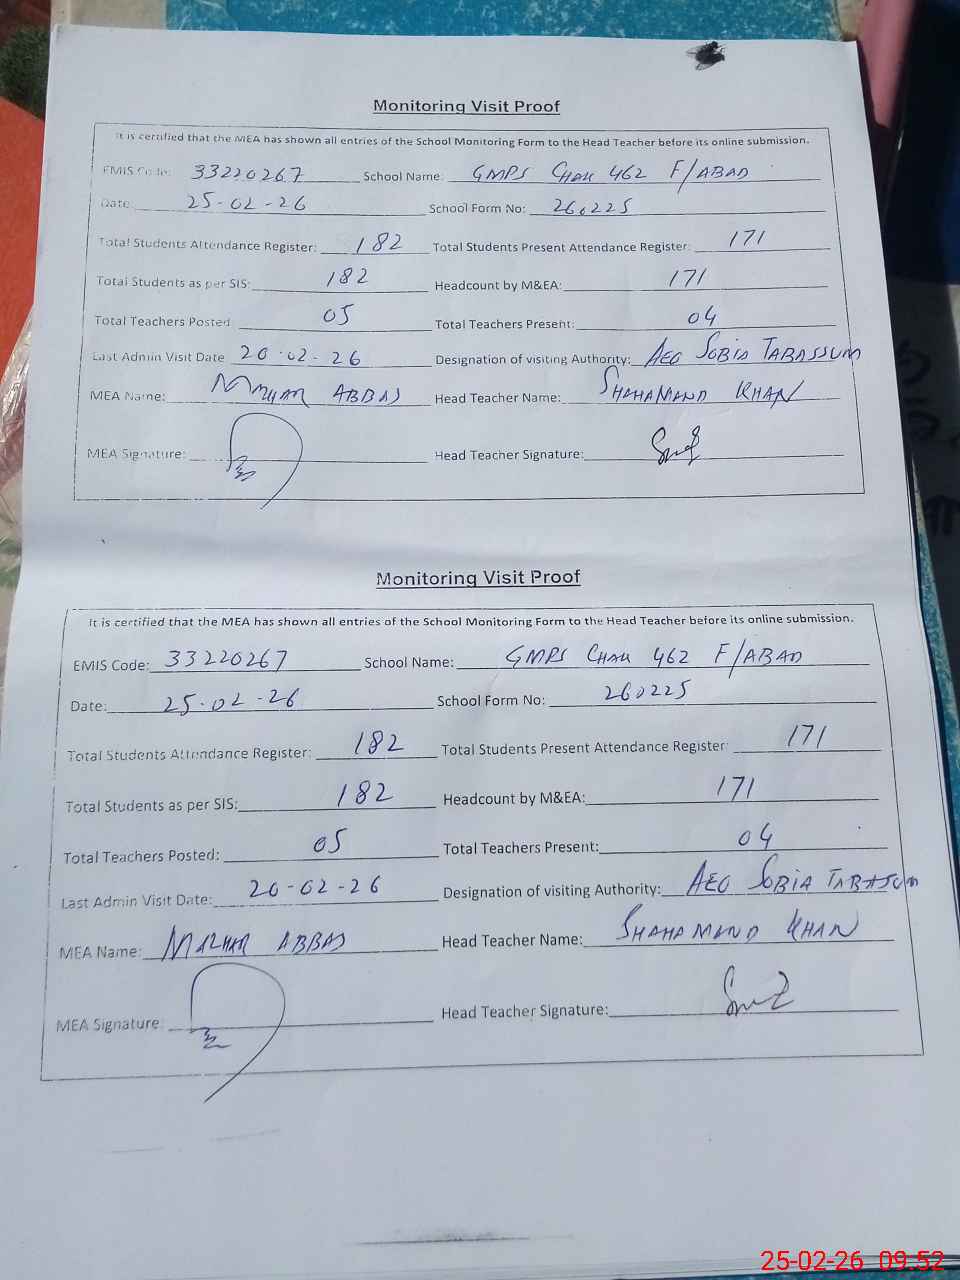 Monitoring Visit Proof
It is certified that the MEA has shown all entries of the School Monitoring Form to the Head Teacher before its online submission.
EMIS Code: 33220267 School Name: GMPS CHAK 462 F/ABAD
Date: 25-02-26 School Form No: 260225
Total Students Attendance Register: 182 Total Students Present Attendance Register: 171
Total Students as per SIS: 182 Headcount by M&EA: 171
Total Teachers Posted: 05 Total Teachers Present: 04
Last Admin Visit Date 20-02-26 Designation of visiting Authority: AEO SOBIA TABASSUM
MEA Name: MAZHAR ABBAS Head Teacher Name: SHAHAMAND KHAN
MEA Signature: Head Teacher Signature:
Monitoring Visit Proof
It is certified that the MEA has shown all entries of the School Monitoring Form to the Head Teacher before its online submission.
EMIS Code: 33220267 School Name: GMPS CHAK 462 F/ABAD
Date: 25-02-26 School Form No: 260225
Total Students Attendance Register: 182 Total Students Present Attendance Register: 171
Total Students as per SIS: 182 Headcount by M&EA: 171
Total Teachers Posted: 05 Total Teachers Present: 04
Last Admin Visit Date: 20-02-26 Designation of visiting Authority: AEO SOBIA TABASUM
MEA Name: MAZHAR ABBAS Head Teacher Name: SHAHAMAND KHAN
MEA Signature: Head Teacher Signature:
25-02-26 09:52